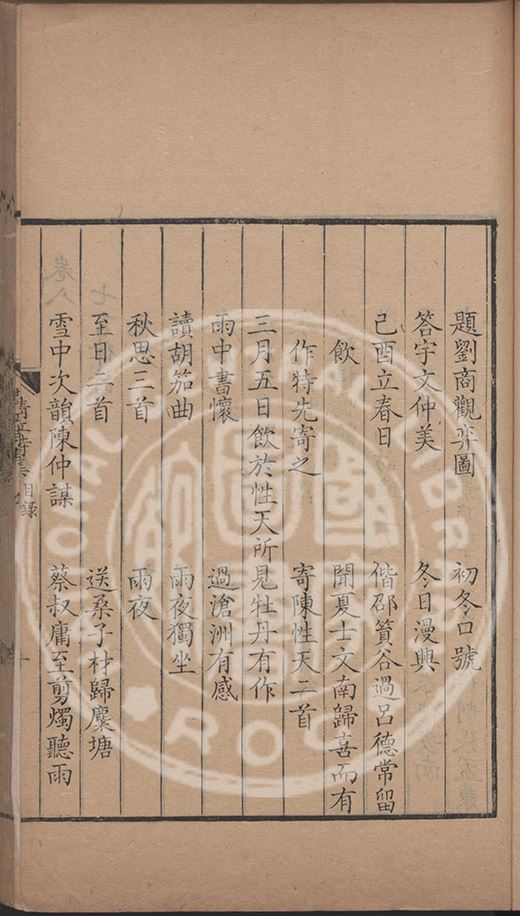 題劉商觀弈圖　初冬口號
答宇文仲美　冬日漫興
己酉立春日　偕邵簣谷過呂德常留
飲　聞夏士文南歸喜而有
作特先寄之　寄陳性天二首
三月五日飲於性天所見牡丹有作
雨中書懷　過滄洲有感
讀胡笳曲　雨夜獨坐
秋思三首　雨夜
至日二首　送桑子材歸麋塘
雪中次韻陳仲謀　蔡叔庸至剪燭聽雨
目錄